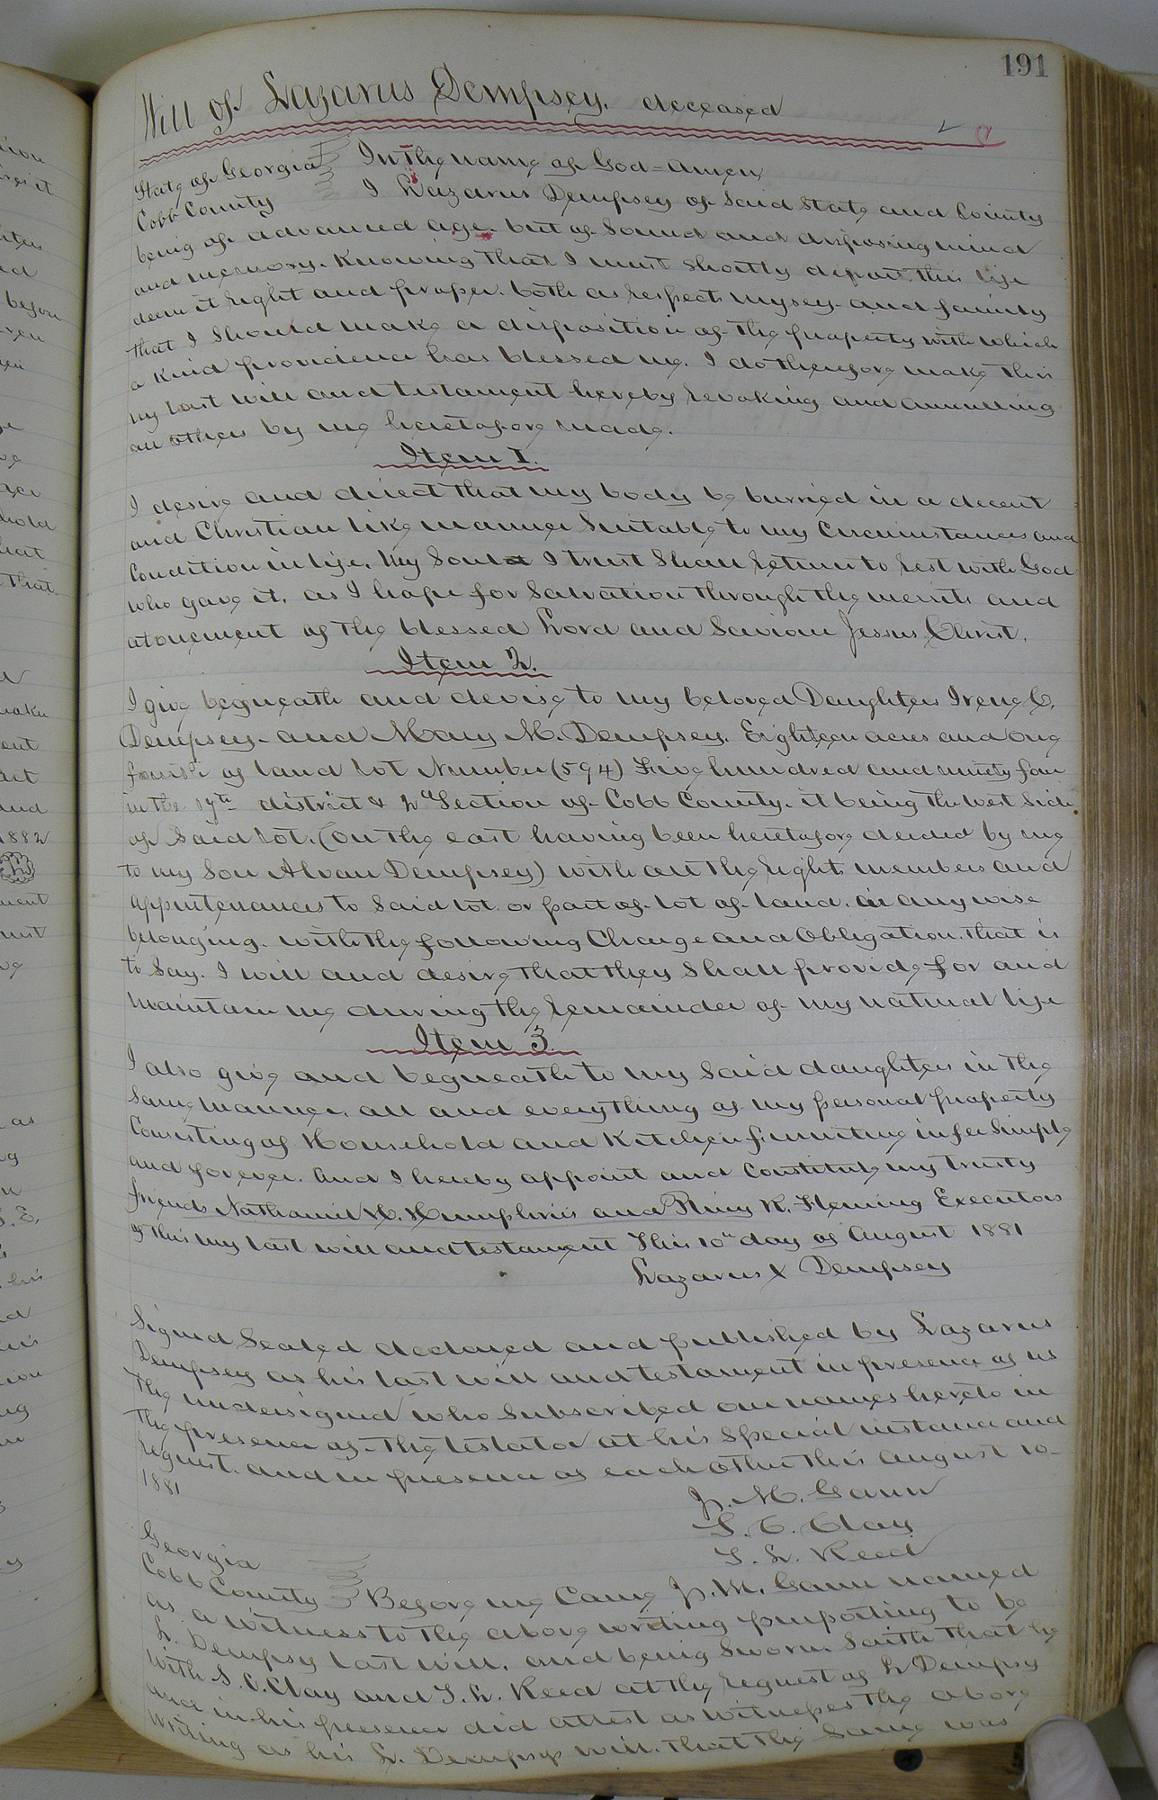 191
Will of Lazarus Dempsey. deceased
State of Georgia In the name of God = Amen
Cobb County I Lazarus Dempsey of Said State and County
being of advanced age. but of Sound and disposing mind
and memory. Knowing that I must Shortly depart this life
deem it right and proper. both as respects myself and family
that I Should make a disposition of the property with which
a Kind providence has blessed me. I do therefore make this
my Last will and testament hereby revoking and annulling
all others by me heretofore made.
Item 1.
I desire and direct that my body be burried in a decent
and Christian like manner Suitable to my Circumstances and
Condition in life. My Soul I trust Shall return to rest with God
who gave it. as I hope for Salvation through the merits and
atonement of the blessed Lord and Saviour Jesus Christ.
Item 2.
I give beqneath and devise to my beloved Daughters Irene C.
Dempsey. and Mary M. Dempsey. Eighteen acres and one
of land Lot Number (594) Five hundred and ninety four
in the 17th district & 2nd Section of Cobb County. it being the west Side
of Said Lot. (On the east having been heretofore deeded by me
to my Son Alvan Dempsey) with all the rights members and
appurtenances to Said lot or part of lot of land. in any wise
belonging. with the following Charge and Obligation. that is
to Say. I will and desire that they Shall provide for and
maintain me during the remainder of my natural life
Item 3.
I also give and beqneath to my Said daughters in the
Same manner. all and everything of my personal property
Consisting of Household and Kitchen furniture in fee Simple
and forever. And I hereby appoint and Constitute my trusty
friends Nathaniel H. Humphries and R. Fleming Executors
of this my last will and testament This 10th day of August 1881
Lazarus X Dempsey
Signed Sealed declared and published by Lazarus
Dempsey as his last will and testament in presence of us
the undersigned who Subscribed our names hereto in
the presence of the testator at his Special instance and
request. and in presence of each other this August 10-
1881
J. M. Gann
S. C. Clay
T. L. Reed
Georgia
Cobb County Before me Came J. M. Gann named
as a witness to the above writing purporting to be
L. Dempsy Last will. and being Sworn Saith that he
with S. C. Clay and T. L. Reed at the request of L Dempsy
and in his presence did attest as witnesses the above
writing as his L. Dempseys will. that the Same was